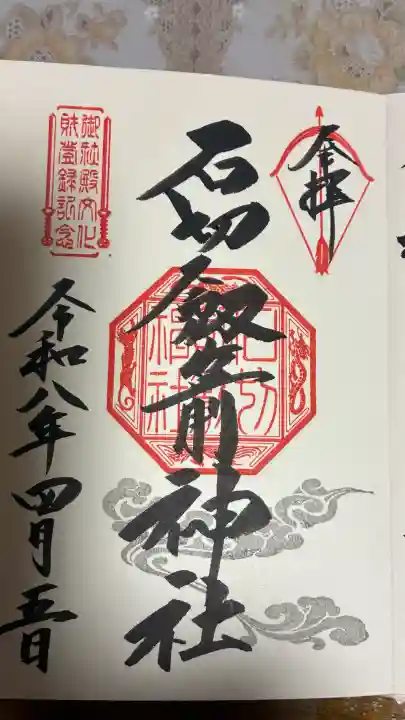 奉拝
石切劔箭神社
御社殿文化
財登録記念
令和八年四月五日